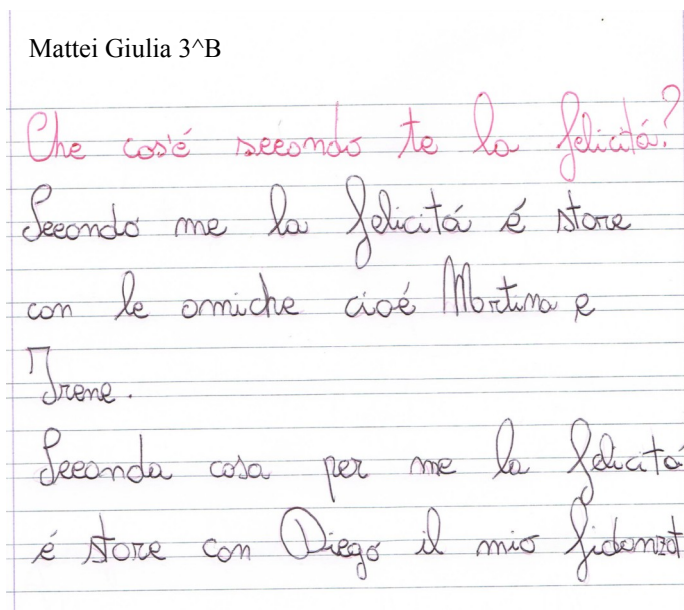 Mattei Giulia 3^B
Che cos'é secondo te la felicitá?
Secondo me la felicitá é stare
con le amiche cioé Martina e
Irene.
Seconda cosa per me la felicitá
é stare con Diego il mio fidanzat